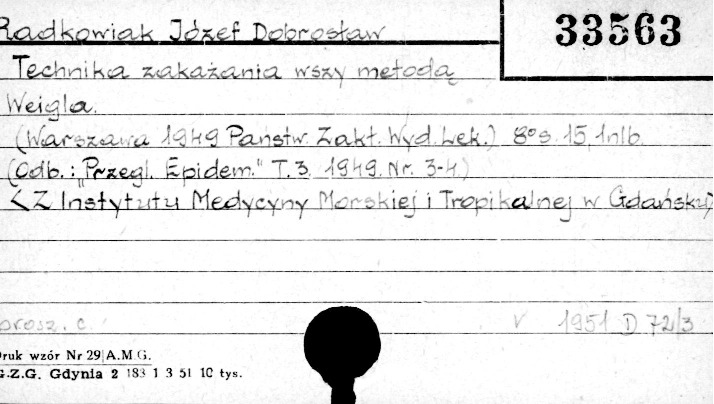 Radkowiak Józef Dobrosław
33563
Technika zakażania wszy metodą
Weigla.
(Warszawa 1949 Państw. Zakł. Wyd. Lek.) 8° s. 15, 1 nlb.
(Odb.: "Przegl. Epidem." T. 3, 1949. Nr. 3-4.)
<Z Instytutu Medycyny Morskiej i Tropikalnej w Gdańsku>
brosz. c.
V 1951 D 72/3
Druk wzór Nr 29 A.M.G.
G.Z.G. Gdynia 2 183 1 3 51 10 tys.